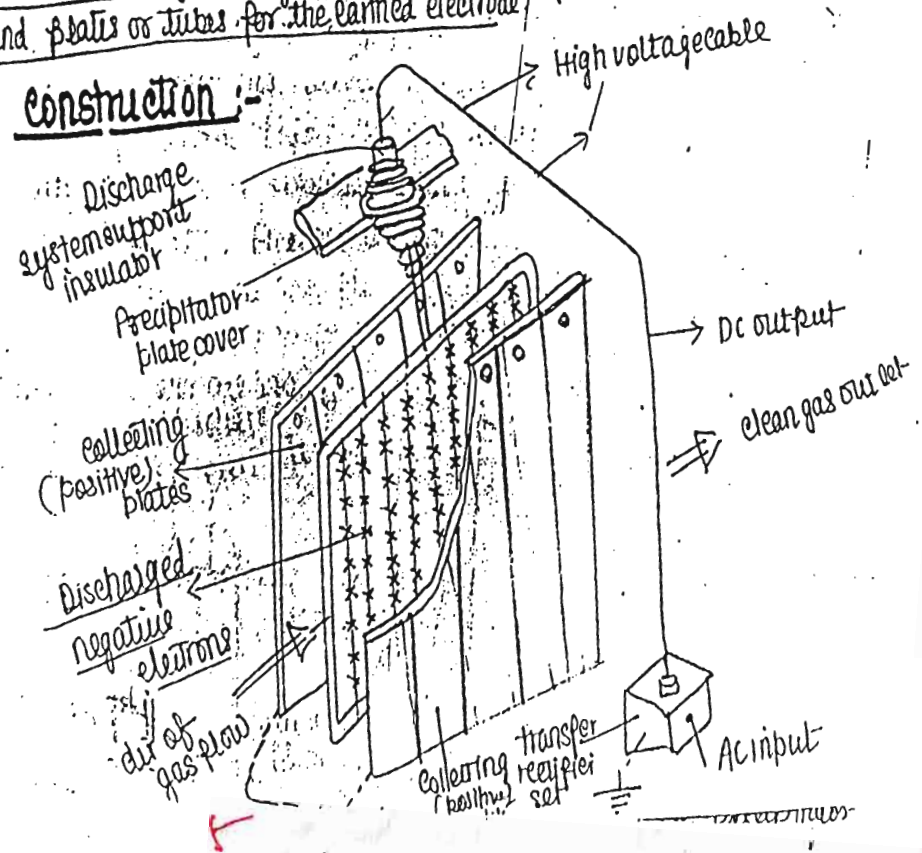 nd plates or tubes for the earthed electrode
Construction :-
High voltage cable
Discharge
system support
insulator
Precipitator
plate cover
DC output
clean gas outlet
collecting
(positive)
plates
Discharged
negative
eletrons
dir of
gas flow
collecting
(positive)
transfer
rectifier
set
AC input